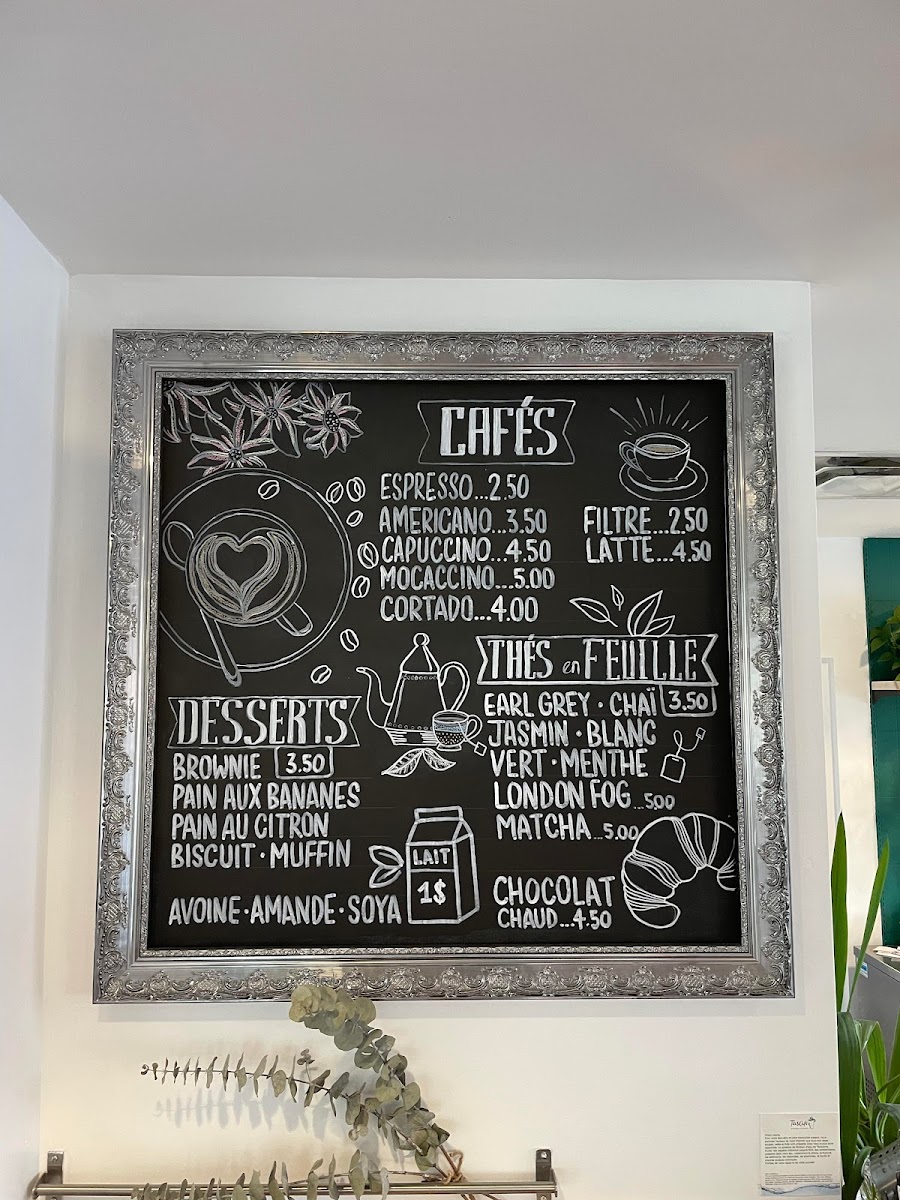 CAFÉS
ESPRESSO...2.50
AMERICANO...3.50
CAPUCCINO...4.50
MOCACCINO...5.00
CORTADO...4.00
FILTRE...2.50
LATTE...4.50
THÉS en FEUILLE
EARL GREY · CHAÏ 3.50
JASMIN · BLANC
VERT · MENTHE
LONDON FOG...5.00
MATCHA...5.00
CHOCOLAT
CHAUD...4.50
DESSERTS
BROWNIE 3.50
PAIN AUX BANANES
PAIN AU CITRON
BISCUIT · MUFFIN
AVOINE · AMANDE · SOYA
LAIT
1$